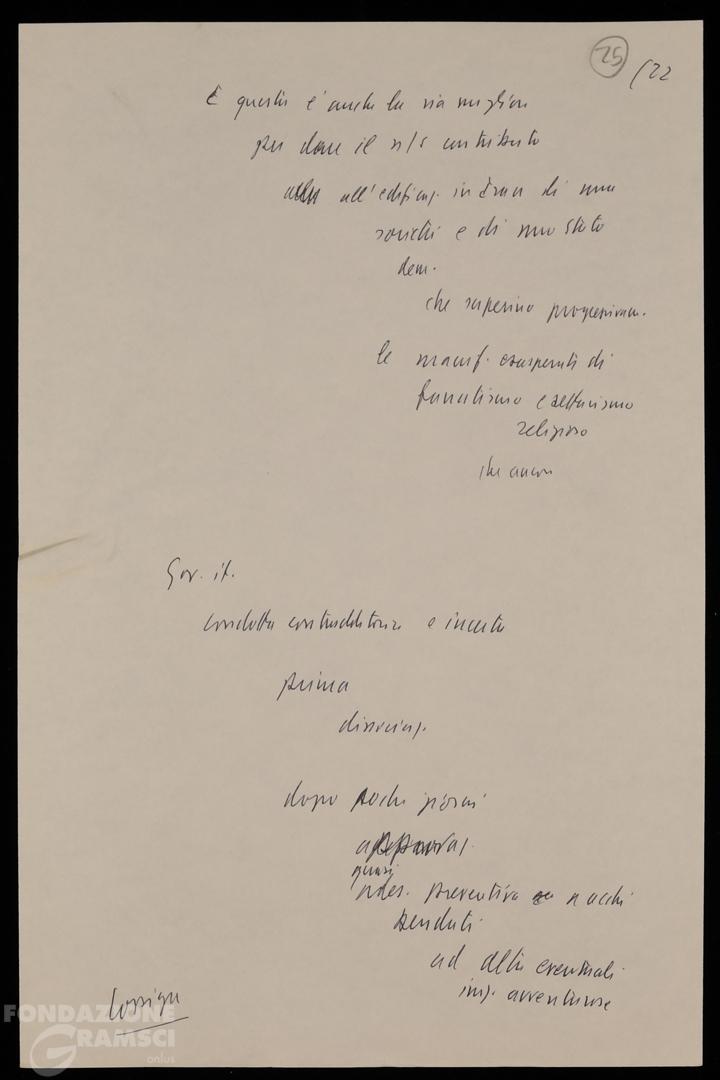 25 /22
È questa è anche la via migliore
per dare il n/s contributo
alla all'edificaz. in Iran di una
società e di uno Stato
dem.
che superino progressivam.
le manif. esasperate di
fanatismo e settarismo
religioso
che ancora
Gov. it.
condotta contraddittoria e incerta
prima
dissociaz.
dopo pochi giorni
approvaz.
quasi
ades. preventiva a occhi
bendati
ad altre eventuali
iniz. avventurose
Cossiga
FONDAZIONE
GRAMSCI
onlus